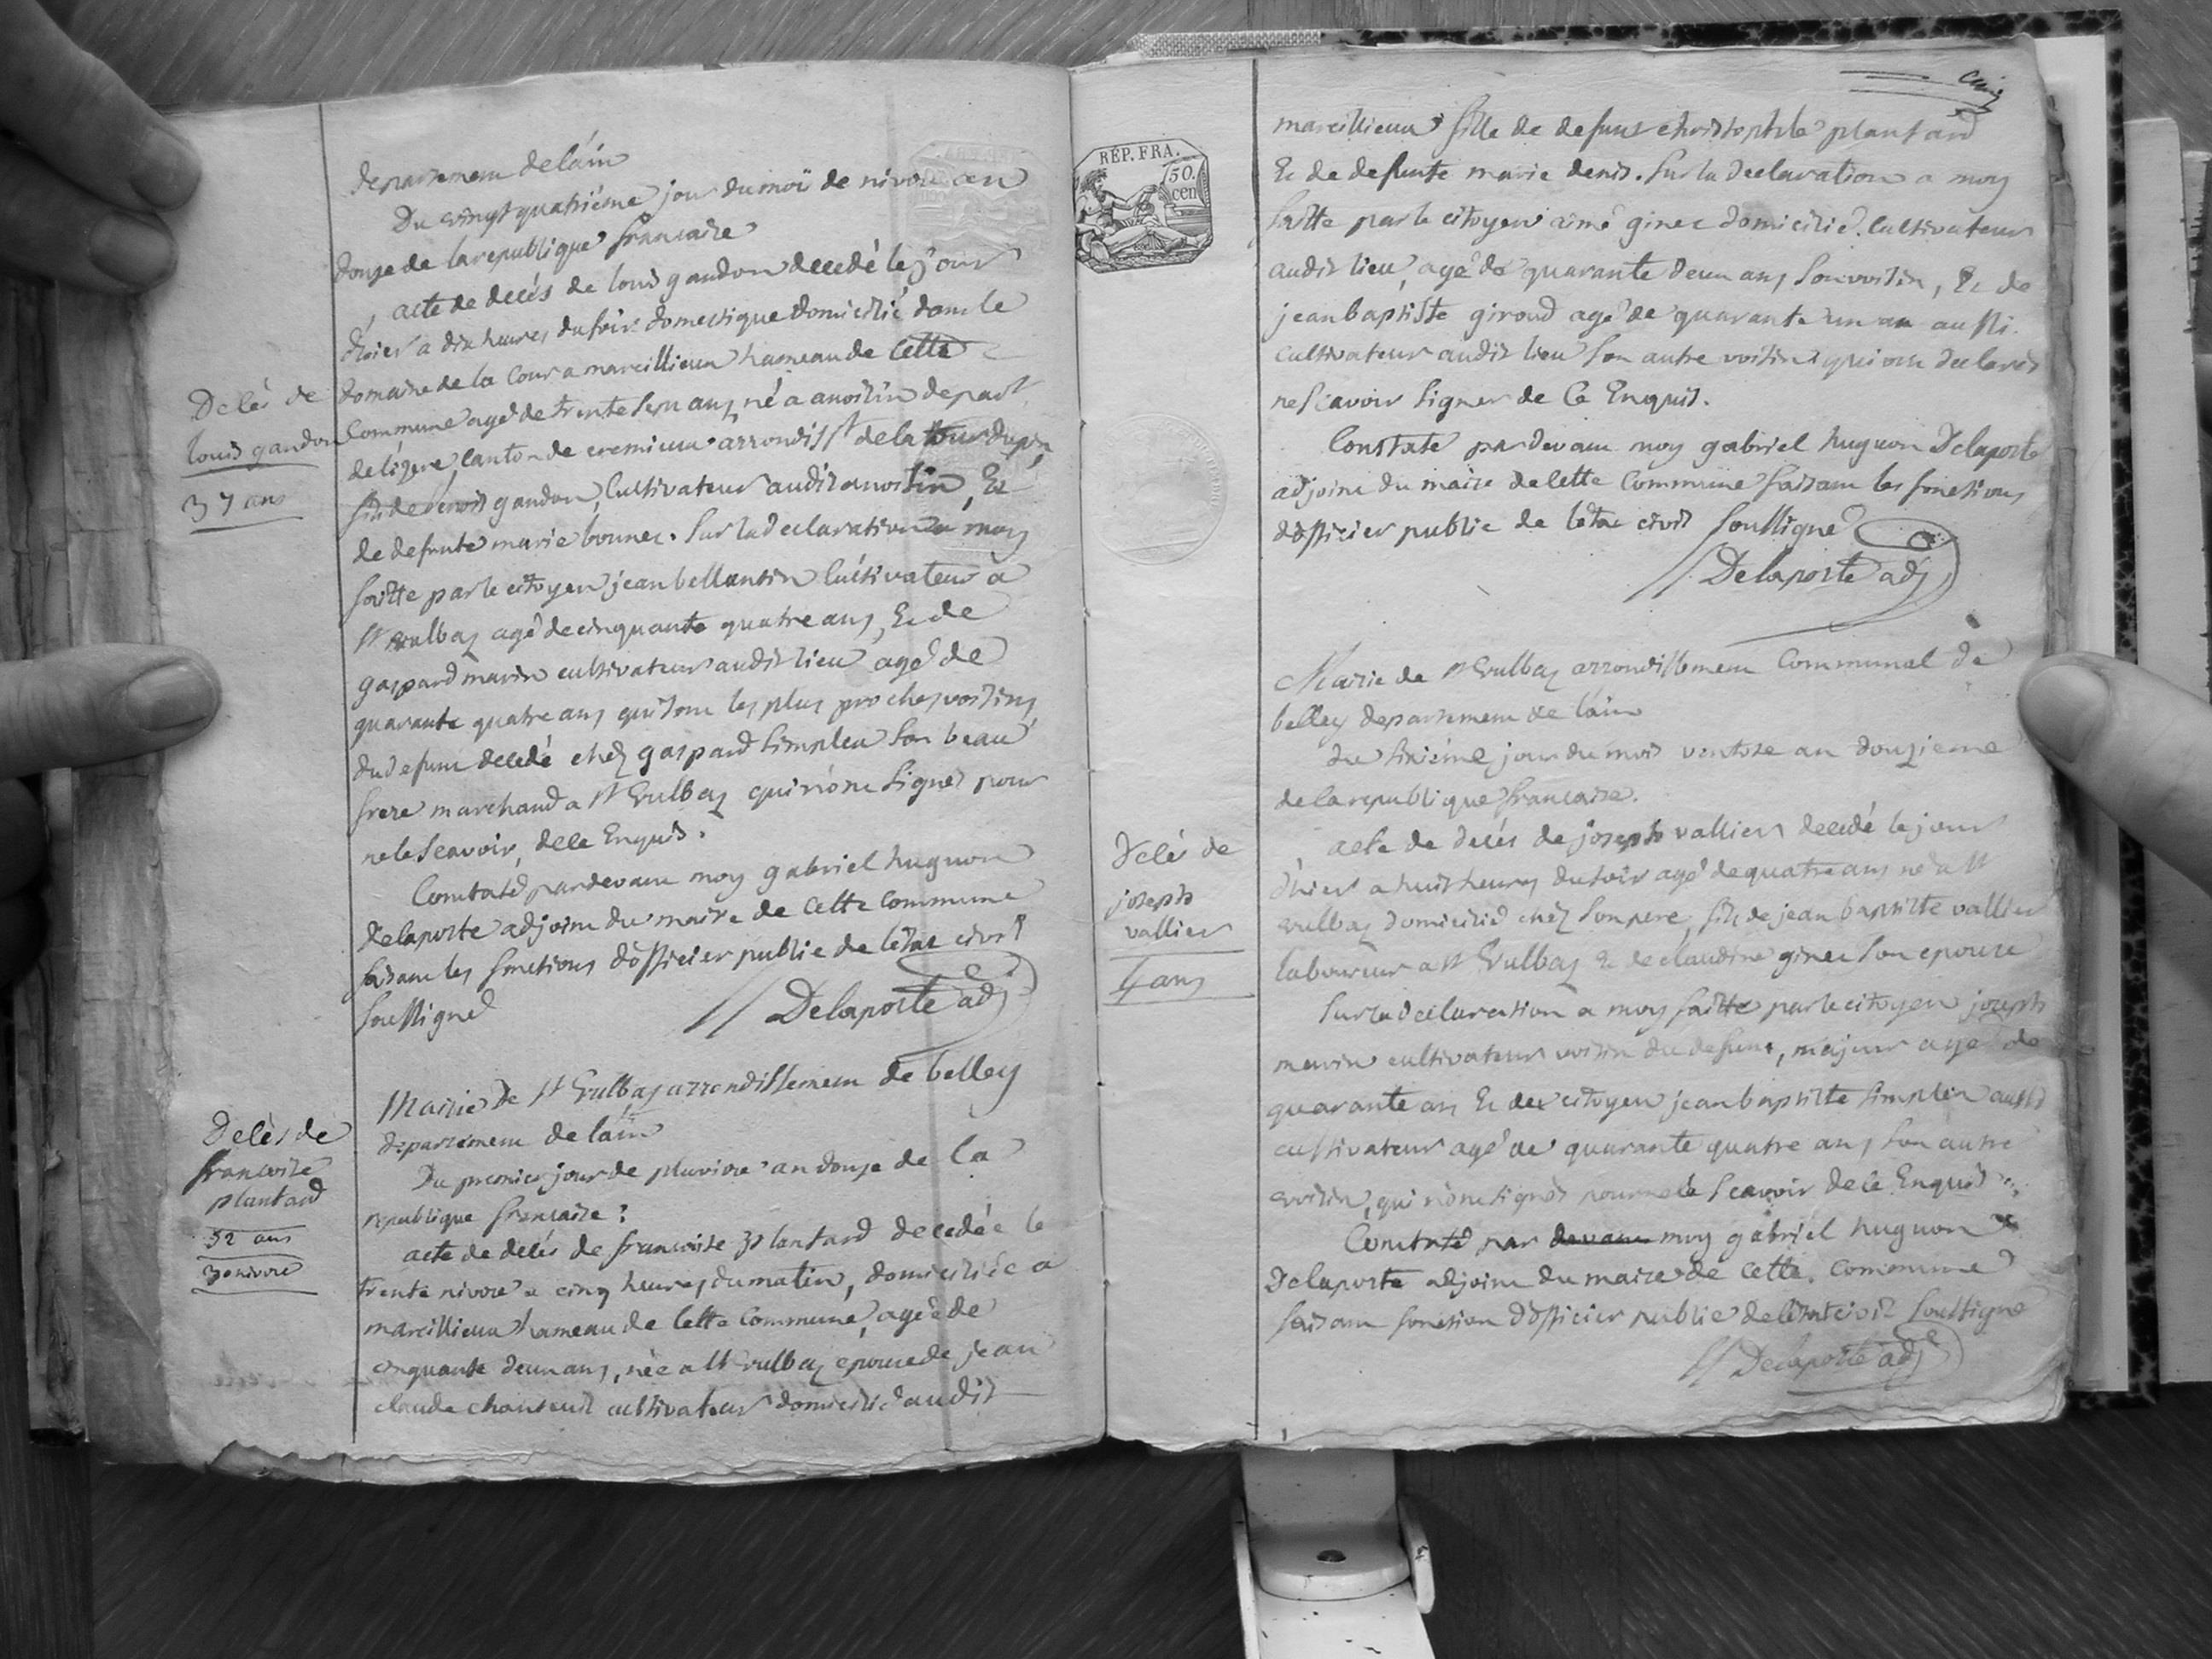 departement de lain
Du vingt quatrième jour du moi de nivose an
douze de la republique francaise
acte de decés de louis gandon decedé le jour
d'hier a dix heures du soir domestique domicilié dans le
domaine de la cour a marcillieux hameau de cette
commune agé de trente sept ans né a anoisin depart
de lizere canton de cremieux arrondisst de la tour du pin
fils de benoit gandon, cultivateur audit anoisin, Et
de defunte marie bonnet. Sur la declaration a moy
faitte par le citoyen jean bellantin cultivateur a
st vulbas agé de cinquante quatre ans, Et de
gaspard marin cultivateur audit lieu agé de
quarante quatre ans qui sont les plus proches voisins
du defunt decedé chez gaspard simplex son beau
frere marchand a st Vulbas qui n'ont signés pour
ne le scavoir, de ce Enquis.
Constaté pardevant moy gabriel hugnon
Delaporte adjoint du maire de cette commune
faisant les fonctions d'officier public de létat civil
soussigné
Delaporte adj
Decés de
louis gandon
37 ans
Mairie de st Vulbas arrondissement de belley
departement de lain
Du premier jour de pluviose an douze de la
republique francaise :
acte de decés de francoise plantard decedée le
trente nivose a cinq heures du matin, domiciliée a
marcillieux hameau de cette commune, agée de
cinquante deux ans, née a st vulbas epouse de jean
claude chanteuil cultivateur domicilié audit
Decès de
francoise
plantard
52 ans
30 nivose
cinq
REP. FRA.
50.
cen
marcillieux fille de defunt christophle plantard
Et de defunte marie denis. Sur la declaration a moy
faitte par le citoyen aimé ginet domicilié cultivateur
audit lieu, agé de quarante deux ans son voisin, Et de
jean baptiste giroud agé de quarante un an aussi
cultivateur audit lieu son autre voisin qui ont declarés
ne scavoir signer de ce Enquis.
Constaté par devant moy gabriel hugnon Delaporte
adjoint du maire de cette commune faisant les fonctions
d'officier public de létat civil soussigné
Delaporte adj
Mairie de st Vulbas arrondissement communal de
belley departement de lain
du sixiéme jour du mois ventose an douzieme
de la republique francaise.
acte de decés de joseph vallier decedé le jour
d'hier a huit heures du soir agé de quatre ans né a st
vulbas domicilié chez son pere, fils de jean baptiste vallier
laboureur a st Vulbas Et de claudine ginet son epouse
Sur la declaration a moy faitte par le citoyen joseph
marin cultivateur voisin du defunt, majeur agé de
quarante ans Et du citoyen jean baptiste simplex aussi
cultivateur agé de quarante quatre ans son autre
voisin, qui n'ont signés pour ne le scavoir de ce Enquis
Constaté par devant moy gabriel hugnon
Delaporte adjoint du maire de cette commune
faisant fonction d'officier public de létat civil soussigné
Delaporte adj
Decés de
joseph
vallier
4 ans